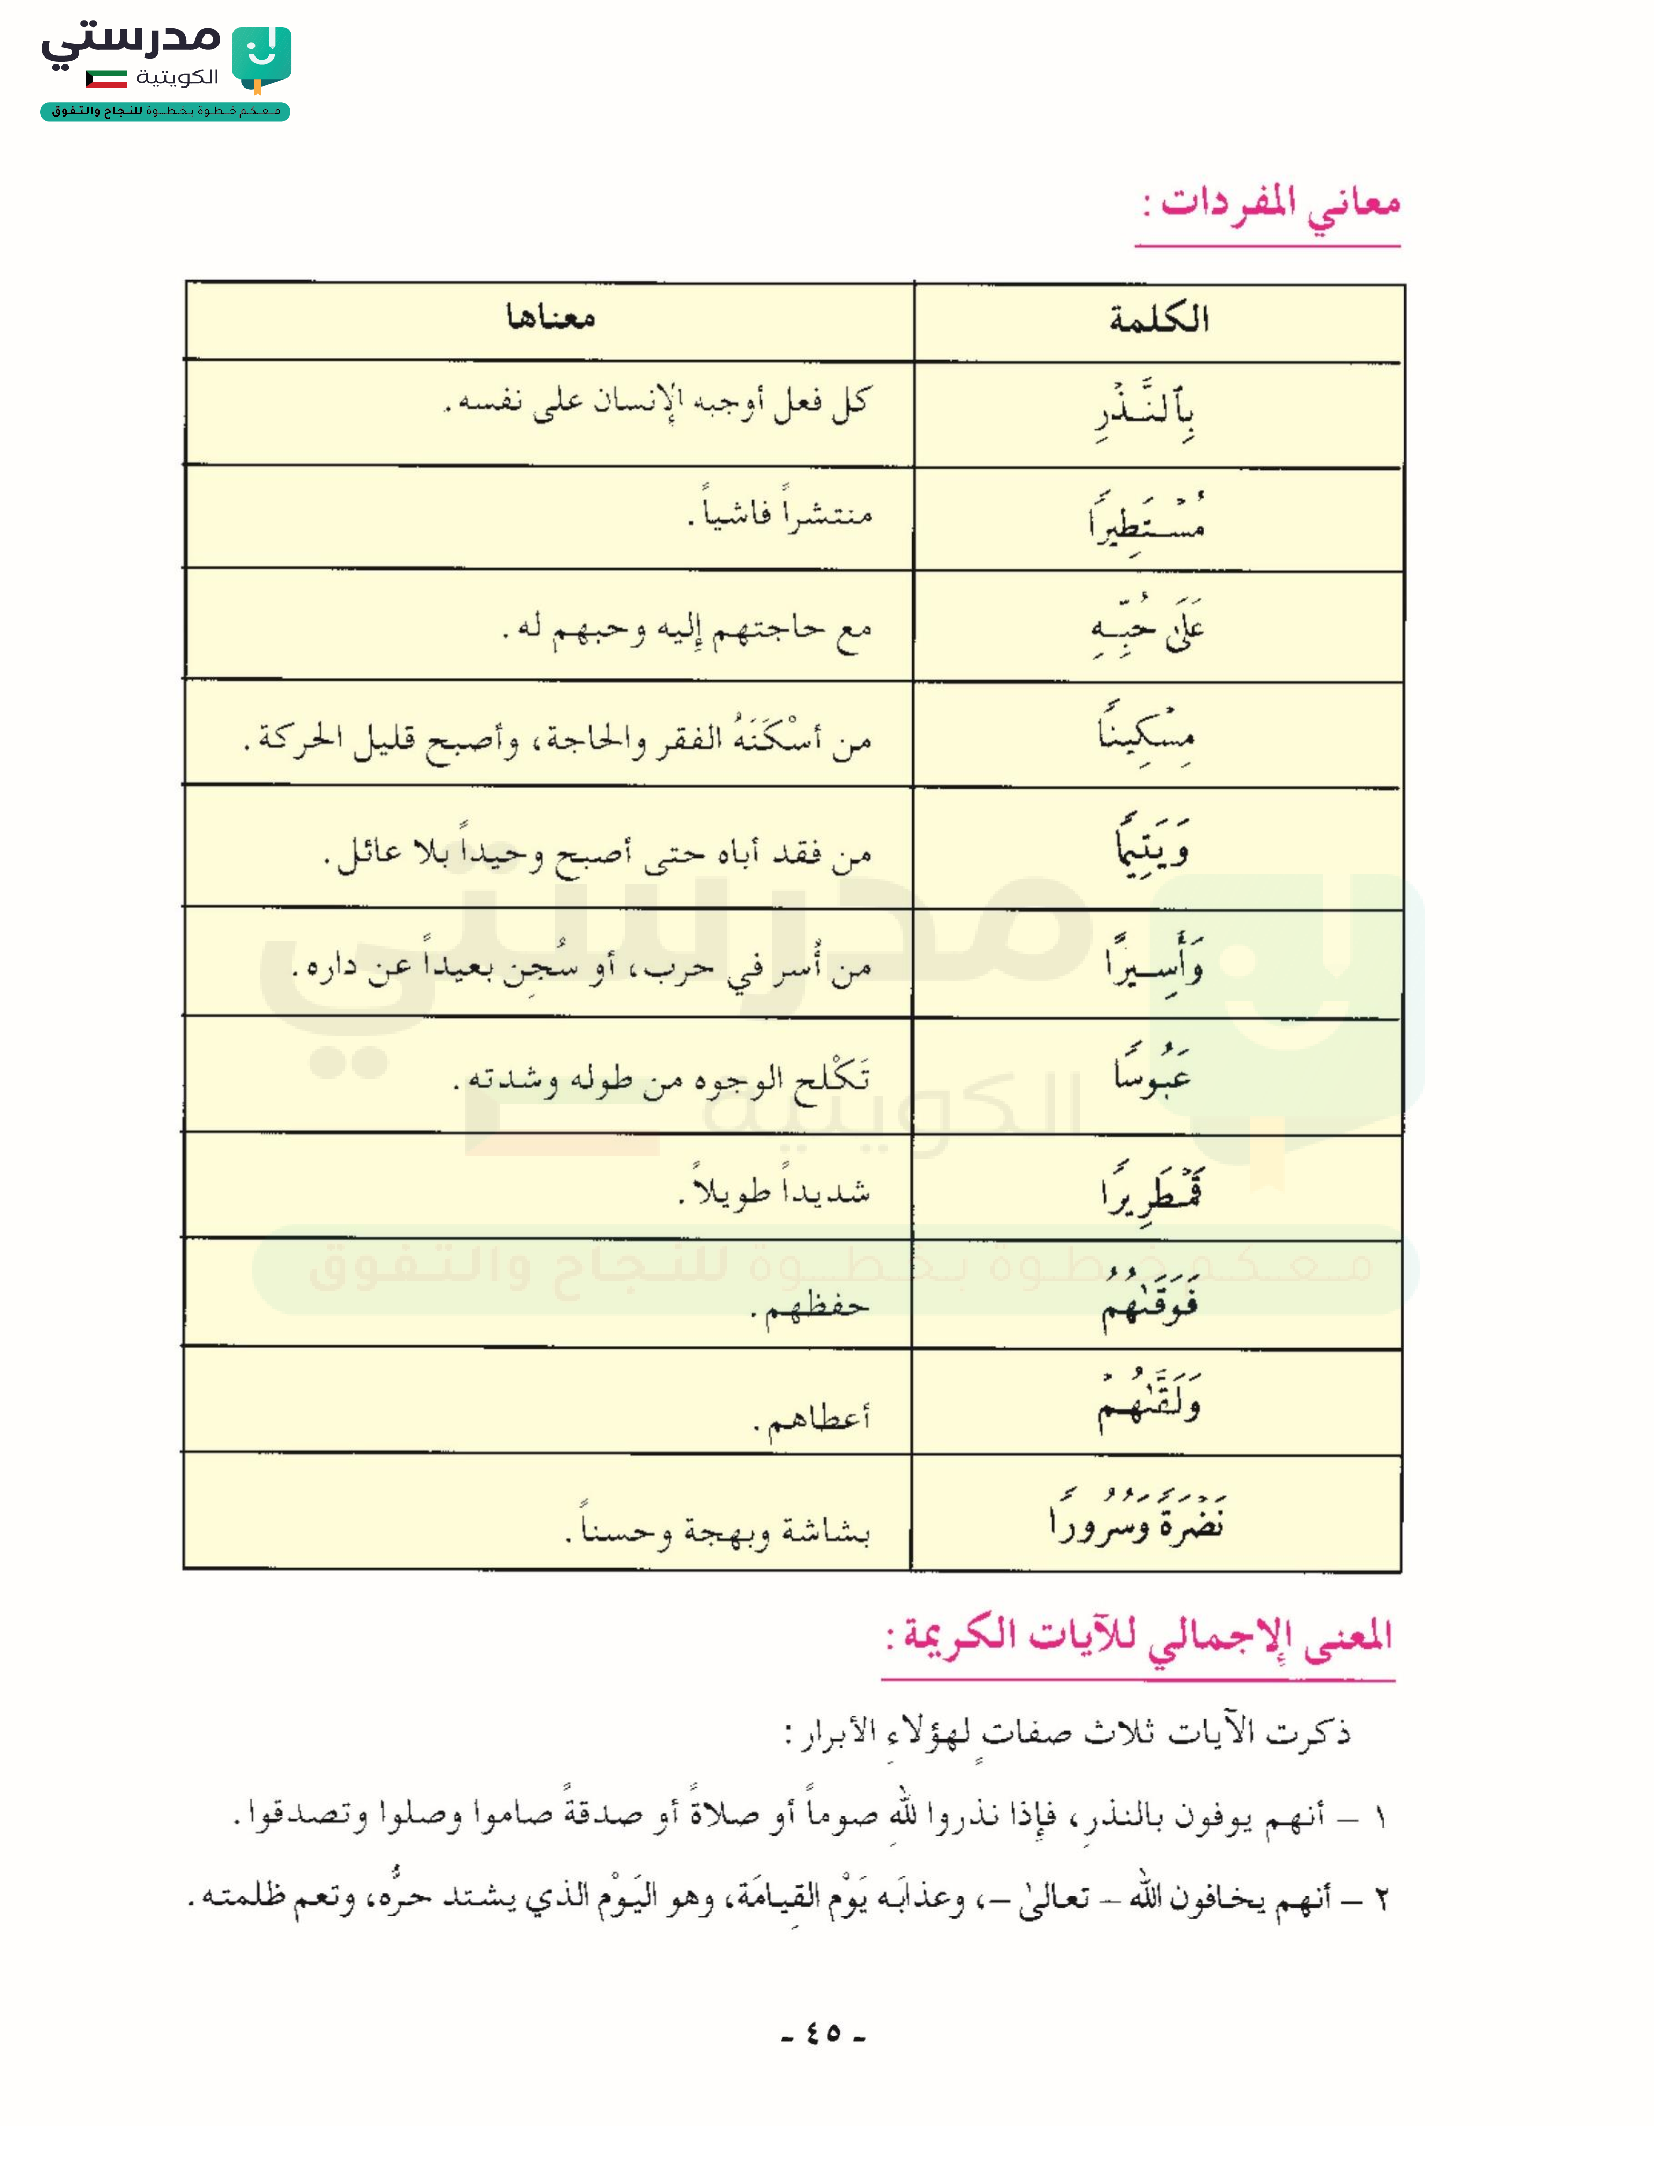 مدرستي
الكويتية
معكم خطوة بخطوة للنجاح والتفوق
معاني المفردات :
الكلمة معناها
بِٱلنَّذْرِ كل فعل أوجبه الإنسان على نفسه .
مُسْتَطِيرًا منتشراً فاشياً .
عَلَىٰ حُبِّهِ مع حاجتهم إليه وحبهم له .
مِسْكِينًا من أسْكَنَهُ الفقر والحاجة، وأصبح قليل الحركة .
وَيَتِيمًا من فقد أباه حتى أصبح وحيداً بلا عائل .
وَأَسِيرًا من أُسر في حرب، أو سُجِن بعيداً عن داره .
عَبُوسًا تَكْلح الوجوه من طوله وشدته .
قَمْطَرِيرًا شديداً طويلاً .
فَوَقَىٰهُمُ حفظهم .
وَلَقَّىٰهُمْ أعطاهم .
نَضْرَةً وَسُرُورًا بشاشة وبهجة وحسناً .
المعنى الإجمالي للآيات الكريمة :
ذكرت الآيات ثلاث صفاتٍ لهؤلاءِ الأبرار :
١ – أنهم يوفون بالنذرِ، فإذا نذروا للهِ صوماً أو صلاةً أو صدقةً صاموا وصلوا وتصدقوا .
٢ – أنهم يخافون الله – تعالىٰ –، وعذابَه يَوْم القِيامَة، وهو اليَوْم الذي يشتد حرُّه، وتعم ظلمته .
- ٤٥ -